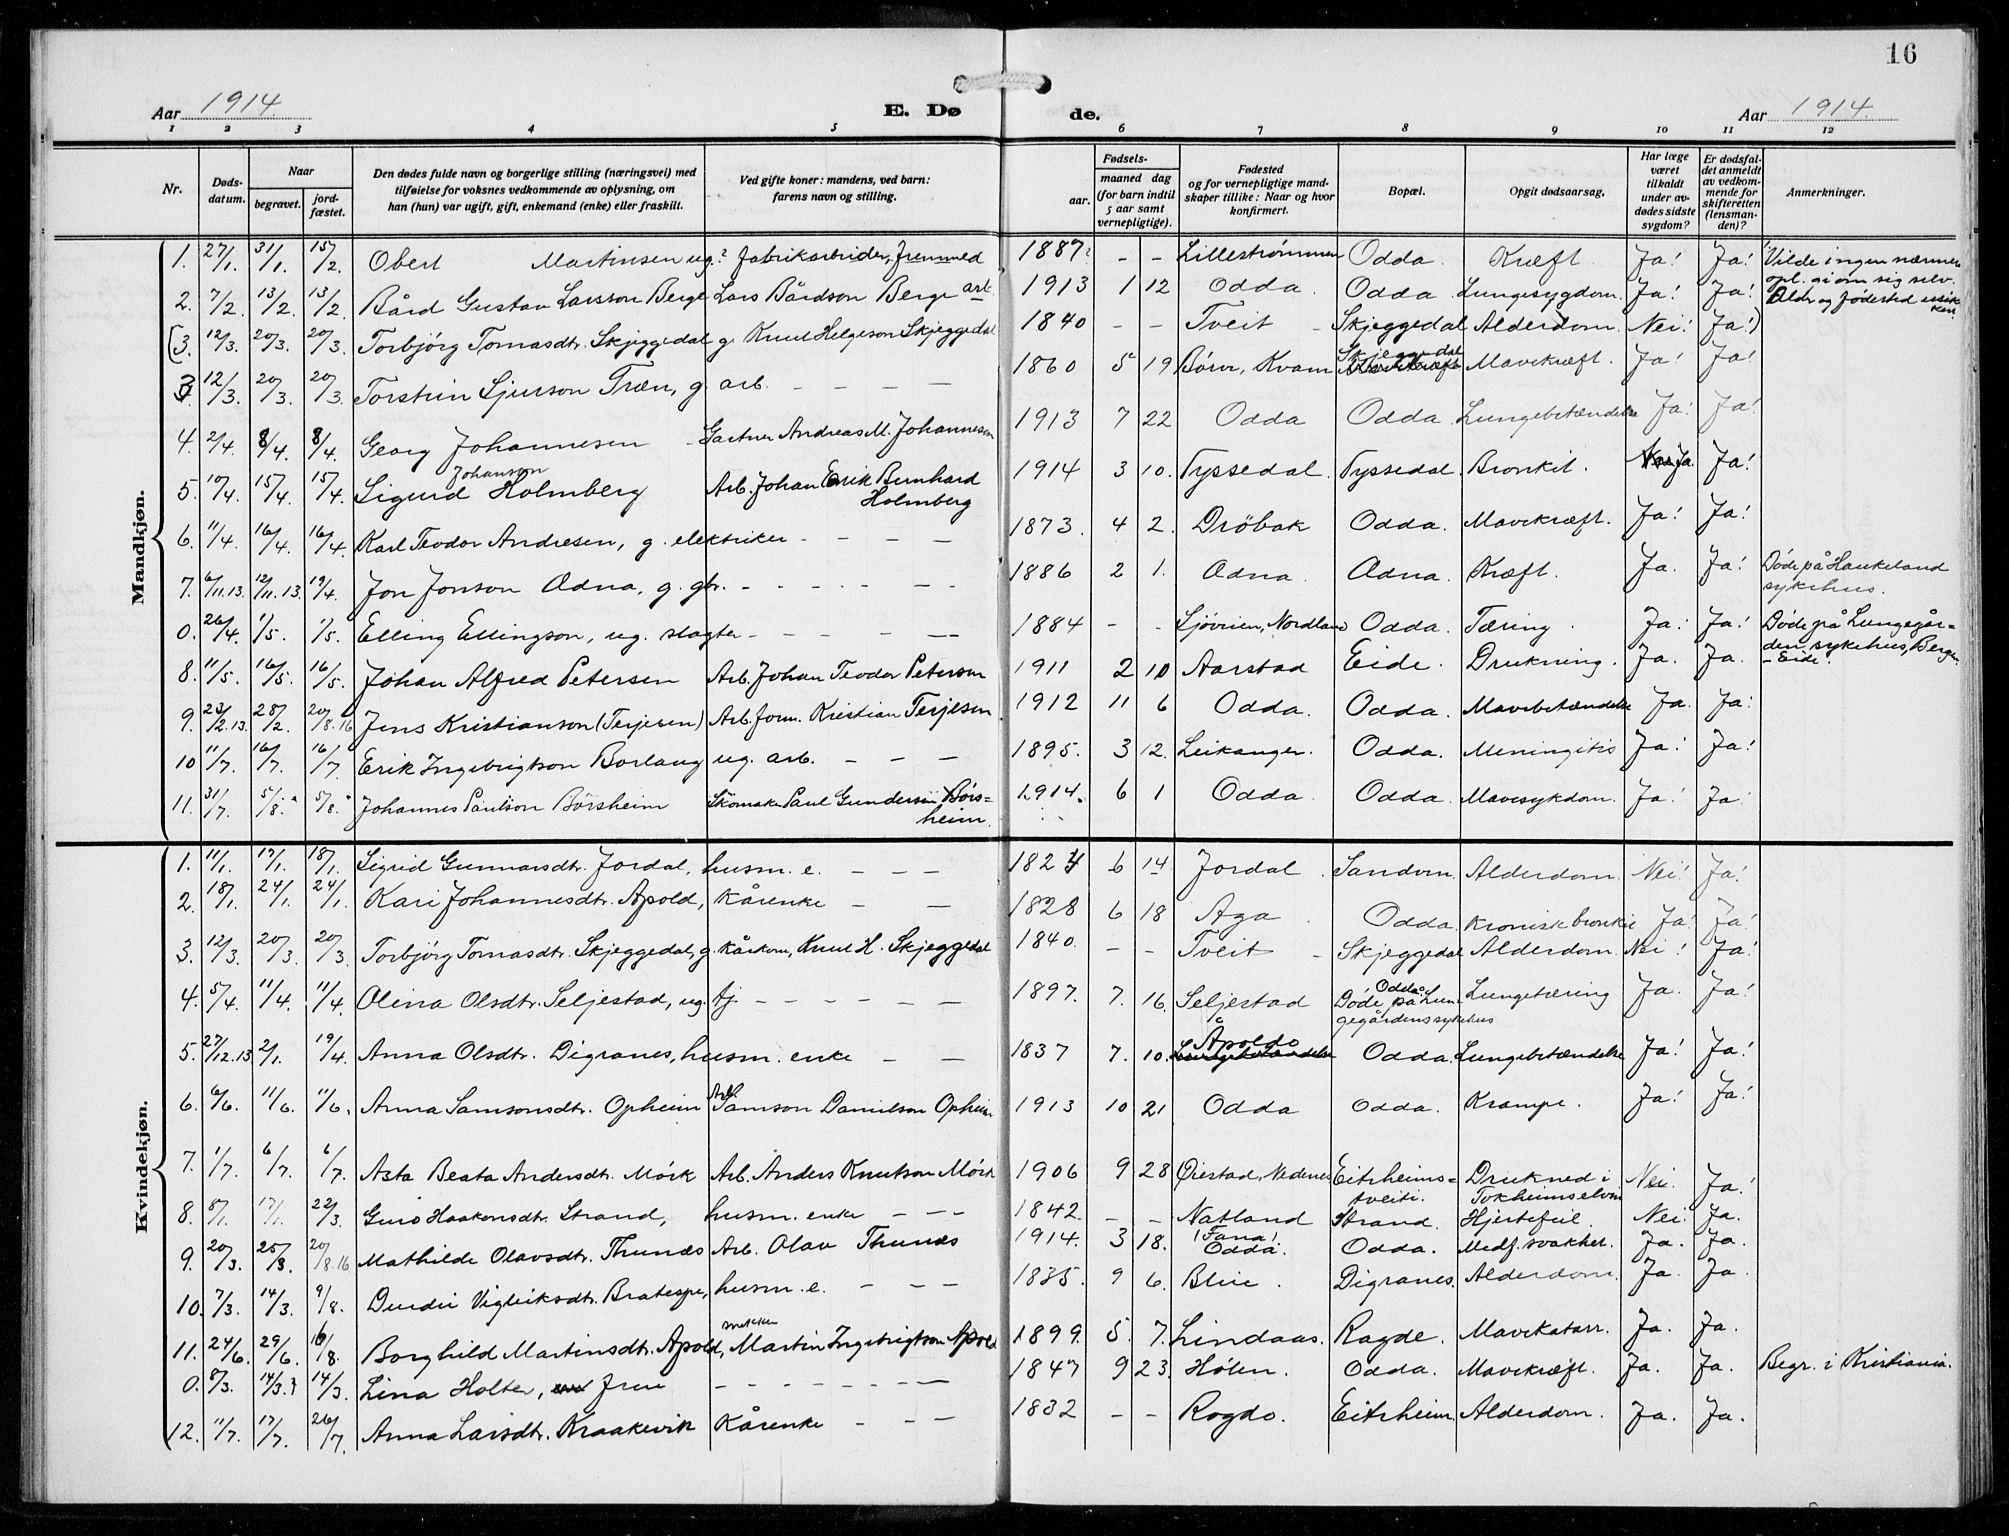 16
Aar 1914. E. Dø de. Aar 1914.
1 2 3 4 5 6 7 8 9 10 11 12
Nr. Døds-datum. Naar begravet. jord-fæstet. Den dødes fulde navn og borgerlige stilling (næringsvei) med tilføielse for voksnes vedkommende av oplysning, om han (hun) var ugift, gift, enkemand (enke) eller fraskilt. Ved gifte koner: mandens, ved barn: farens navn og stilling. Fødsels- aar. maaned dag (for barn indtil 5 aar samt vernepligtige). Fødested og for vernepligtige mand-skaper tillike: Naar og hvor konfirmert. Bopæl. Opgit dødsaarsag. Har læge været tilkaldt under av-dødes sidste sygdom? Er dødsfal-det anmeldt av vedkom-mende for skifteretten (lensman-den)? Anmerkninger.
Mandkjøn.
1. 27/1. 31/1. 15/2. Obert Martinsen ug.? fabrikarbeider, fremmed 1887? - - Lillestrømmen Odda. Kræft. Ja! Ja! Vilde ingen nærmere opl. gi om sig selv. Alder og fødested usikkert.
2. 7/2. 13/2. 13/2. Bård Gustav Larsson Berge Lars Bårdson Berge arb. 1913 1 12 Odda. Odda. Lungesygdom. Ja! Ja!
(3. 12/3. 20/3. 20/3. Torbjörg Tomasdtr. Skjeggedal g. Knut Helgeson Skjeggedal 1840 - - Tveit - Skjeggedal Alderdom. Nei! Ja!)
3. 12/3. 20/3. 20/3. Torstein Sjurson Træn, g arb. - - - - 1860 5 19 Börve, Kvam Skjeggedal Mavekræft. Ja! Ja!
4. 2/4. 8/4. 8/4. Georg Johannesen - Gartner Andreas M. Johannesen 1913 7 22 Odda Odda. Lungebetændelse Ja! Ja!
5. 10/4. 15/4. 15/4. Sigurd Johanson Holmberg Arb. Johan Erik Bernhard Holmberg 1914 3 10. Tyssedal. Tyssedal. Bronkit. Ja. Ja!
6. 11/4. 16/4. 16/4. Karl Teodor Andresen, g. elektriker - - - - 1873. 4 2. Dröbak Odda. Mavekræft. Ja! Ja!
7. 6/11.13. 12/11.13. 19/4. Jon Jonson Odna, g. gbr. - - - - - 1886 2 1. Odna. Odna. Kræft. Ja. Ja! Døde på Haukeland sykehus.
0. 26/4. 1/5. 1/5. Elling Ellingson, ug. slagter - - - - - 1884 - - Sjövien, Nordland Odda. Tæring. Ja! Ja! Døde på Lungegår=den sykehus, Bergen.
8. 11/5. 16/5. 16/5. Johan Alfred Petersen Arb. Johan Teodor Petersen 1911 2 10 Aarstad Eide. Drukning. Ja. Ja. - Eide.
9. 23/2.13. 28/2. 20/8.16 Jens Kristianson (Terjesen) Arb.form. Kristian Terjesen 1912 11 6 Odda. Odda. Mavebetændelse Ja. Ja!
10 11/7. 16/7. 16/7. Erik Ingebrigtson Borlaug ug. arb. - - - 1895. 3 12. Leikanger. Odda. Meningitis Ja! Ja!
11. 31/7. 5/8. 5/8. Johannes Paulson Börsheim Skomaker Paul Gunderson Börs=heim. 1914. 6 1 Odda. Odda. Mavesykdom. Ja! Ja!
Kvindekjøn.
1. 11/1. 17/1. 18/1. Sigrid Gunnarsdtr. Jordal, husm. e. - - - 1824 6 14 Jordal. Sandven. Alderdom. Nei! Ja!
2. 18/1. 24/1. 24/1. Kari Johannesdtr. Apold, kårenke - - 1828 6 18 Aga. Odda. Kronisk bronkit Ja! Ja!
3. 12/3. 20/3. 20/3. Torbjörg Tomasdtr. Skjeggedal, g. kårkone, Knut H. Skjeggedal 1840. - - Tveit - Skjeggedal Alderdom. Nei! Ja!
4. 5/4. 11/4. 11/4. Olina Olsdtr. Seljestad, ug. tj. - - - - - 1897. 7. 16. Seljestad Odda. Døde på Lungegårdens sykehus Lungetæring Ja. Ja!
5. 27/12.13 2/1. 19/4. Anna Olsdtr. Digranes, husm. enke - - 1837 7. 10. Åpoldo Odda. Lungebetændelse Ja! Ja!
6. 6/6. 11/6. 11/6. Anna Samsonsdtr. Opheim Arb. Samson Danielson Opheim. 1913 10 21 Odda Odda. Krampe. Ja! Ja!
7. 1/7. 6/7. 6/7. Asta Beata Andersdtr. Mörk Arb. Anders Knutson Mörk 1906 9 28 Øiestad, Nedenes Eitrheims=tveiti. Drukned i Tokheimselven Nei. Ja!
8. 8/1. 17/1. 22/3. Guro Haakonsdtr. Strand, husm. enke - - - 1842 - - Natland (Fana). Strand. Hjertefeil. Nei! Ja.
9. 20/3. 25/3. 20/8.16 Mathilde Olavsdtr. Thunæs Arb. Olav Thunæs 1914. 3 18. Odda. Odda. Medf. svakhet. Ja. Ja.
10. 7/3. 14/3. 9/8. Durdei Vigleiksdtr. Bratespe, husm. e. - - - 1835. 9 6. Bleie. Digranes. Alderdom. Ja. Ja.
11. 24/6. 29/6. 16/8. Borghild Martinsdtr. Apold, snekker Martin Ingebrigtson Apold 1899. 5. 7. Lindaas. Ragde. Mavekatarr. Ja. Ja.
0. 8/3. 14/3. 14/3. Lina Holter, Frue - - - - - - 1847 9 23. Hölen. Odda. Mavekræft. Ja. Ja. Begr. i Kristiania.
12. 11/7. 17/7. 26/7. Anna Larsdtr. Kraakevik Kårenke - - - 1832 - - Rogdo. Eitrheim. Alderdom. Ja. Ja.